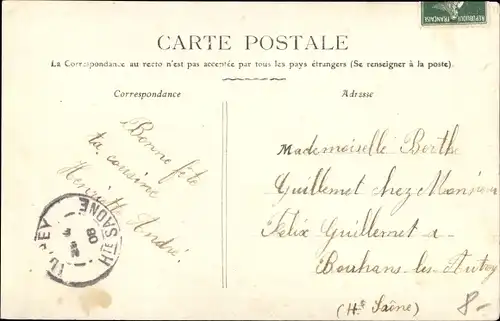 RÉPUBLIQUE FRANÇAISE
CARTE POSTALE
La Correspondance au recto n'est pas acceptée par tous les pays étrangers (Se renseigner à la poste).
Correspondance
Adresse
Bonne fête
ta cousine
Henriette André.
HTE SAÔNE
08
Mademoiselle Berthe
Guillemet chez Monsieur
Félix Guillemet a
Bouhans-les-Autrey
(Hte Saône)
8-